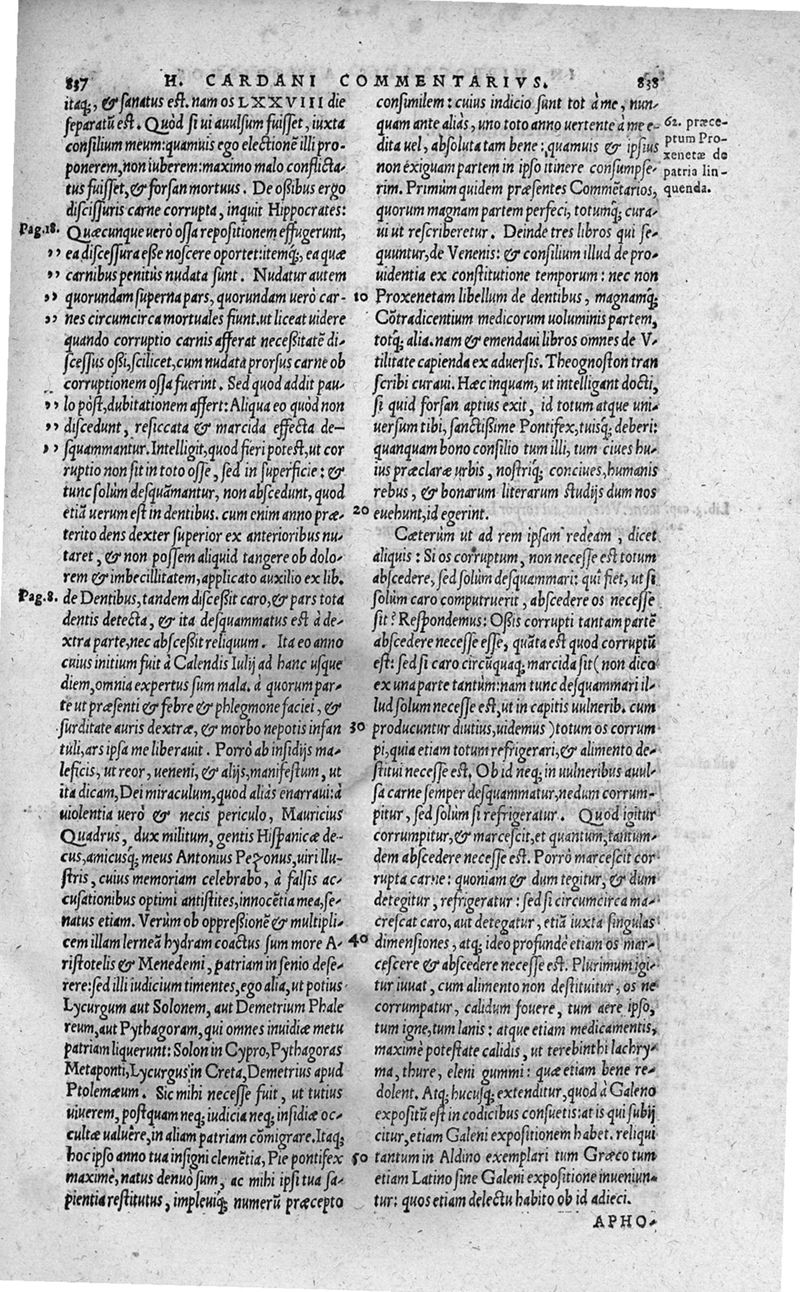 837 H. CARDANI COMMENTARIVS. 838
itaq;, & sanatus est. nam os LXXVIII die
separatū est. Quòd si ui auulsum fuisset, iuxta
consilium meum: quamuis ego electionē illi pro-
ponerem, non iuberem: maximo malo conflicta-
tus fuisset, & forsan mortuus. De oßibus ergo
discissuris carne corrupta, inquit Hippocrates:
Pag. 18. Quæcunque uerò ossa repositionem effugerunt,
,, ea discessura esse noscere oportet: itemq; ea quæ
,, carnibus penitus nudata sunt. Nudatur autem
,, quorundam superna pars, quorundam uerò car-
,, nes circumcirca mortuales fiunt. ut liceat uidere
quando corruptio carnis afferat neceßitatē di-
scessus oßi, scilicet, cum nudata prorsus carne ob
corruptionem ossa fuerint. Sed quod addit pau-
,, lo pòst, dubitationem affert: Aliqua eo quòd non
,, discedunt, resiccata & marcida effecta de-
,, squammantur. Intelligit, quod fieri potest, ut cor
ruptio non sit in toto osse, sed in superficie: &
tunc solùm desquāmantur, non abscedunt, quod
etiā uerum est in dentibus. cum enim anno præ-
terito dens dexter superior ex anterioribus nu-
taret, & non possem aliquid tangere ob dolo-
rem & imbecillitatem, applicato auxilio ex lib.
Pag. 8. de Dentibus, tandem disceßit caro, & pars tota
dentis detecta, & ita desquammatus est à de-
xtra parte, nec absceßit reliquum. Ita eo anno
cuius initium fuit à Calendis Iulij ad hanc usque
diem, omnia expertus sum mala. à quorum par-
te ut præsenti & febre & phlegmone faciei, &
surditate auris dextræ, & morbo nepotis infan
tuli, ars ipsa me liberauit. Porrò ab insidijs ma-
leficis, ut reor, ueneni, & alijs, manifestum, ut
ita dicam, Dei miraculum, quod aliàs enarraui: à
uiolentia uerò & necis periculo, Mauricius
Quadrus, dux militum, gentis Hispanicæ de-
cus, amicusq; meus Antonius Pezonus, uiri illu-
stris, cuius memoriam celebrabo, à falsis ac-
cusationibus optimi antistites, innocētia mea, se-
natus etiam. Verùm ob oppreßionē & multipli-
cem illam lerneā hydram coactus sum more A-
ristotelis & Menedemi, patriam in senio dese-
rere: sed illi iudicium timentes, ego alia, ut potius
Lycurgum aut Solonem, aut Demetrium Phale
reum, aut Pythagoram, qui omnes inuidiæ metu
patriam liquerunt: Solon in Cypro, Pythagoras
Metaponti, Lycurgus in Creta, Demetrius apud
Ptolemæum. Sic mihi necesse fuit, ut tutius
uiuerem, postquam neq; iudicia neq; insidiæ oc-
cultæ ualuêre, in aliam patriam cōmigrare. Itaq;
hoc ipso anno tua insigni clemētia, Pie pontifex
maximè, natus denuò sum, ac mihi ipsi tua sa-
pientia restitutus, impleuiq; numerū præcepto
consimilem: cuius indicio sunt tot à me, nun-
quam ante aliàs, uno toto anno uertente à me e-
dita uel, absoluta tam bene: quamuis & ipsius
non exiguam partem in ipso itinere consumpse-
rim. Primùm quidem præsentes Commētarios,
quorum magnam partem perfeci, totumq; cura-
ui ut rescriberetur. Deinde tres libros qui se-
quuntur, de Venenis: & consilium illud de pro-
uidentia ex constitutione temporum: nec non
10 Proxenetam libellum de dentibus, magnamq;
Cōtradicentium medicorum uoluminis partem,
totq; alia. nam & emendaui libros omnes de V-
tilitate capienda ex aduersis. Theognoston tran
scribi curaui. Hæc inquam, ut intelligant docti,
si quid forsan aptius exit, id totum atque uni-
uersum tibi, sanctißime Pontifex, tuisq; deberi:
quanquam bono consilio tum illi, tum ciues hu-
ius præclaræ urbis, nostriq; conciues, humanis
rebus, & bonarum literarum studijs dum nos
20 euehunt, id egerint.
Cæterùm ut ad rem ipsam redeam, dicet
aliquis: Si os corruptum, non necesse est totum
abscedere, sed solùm desquammari: quî fiet, ut si
solùm caro computruerit, abscedere os necesse
sit? Respondemus: Oßis corrupti tantam partē
abscedere necesse esse, quāta est quod corruptū
est: sed si caro circūquaq; marcida sit (non dico
ex una parte tantùm: nam tunc desquammari il-
lud solum necesse est, ut in capitis uulnerib. cum
30 producuntur diutius, uidemus) totum os corrum
pi, quia etiam totum refrigerari, & alimento de-
stitui necesse est. Ob id neq; in uulneribus auul-
sa carne semper desquammatur, nedum corrum-
pitur, sed solùm si refrigeratur. Quod igitur
corrumpitur, & marcescit, et quantum, tantum-
dem abscedere necesse est. Porrò marcescit cor
rupta carne: quoniam & dum tegitur, & dum
detegitur, refrigeratur: sed si circumcirca ma-
crescat caro, aut detegatur, etiā iuxta singulas
40 dimensiones, atq; ideo profundè etiam os mar-
cescere & abscedere necesse est. Plurimum igi-
tur iuuat, cum alimento non destituitur, os ne
corrumpatur, calidum fouere, tum aere ipso,
tum igne, tum lanis: atque etiam medicamentis,
maximè potestate calidis, ut terebinthi lachry-
ma, thure, eleni gummi: quæ etiam bene re-
dolent. Atq; hucusq; extenditur, quod à Galeno
expositū est in codicibus consuetis: at is qui subij
citur, etiam Galeni expositionem habet. reliqui
50 tantum in Aldino exemplari tum Græco tum
etiam Latino sine Galeni expositione inueniun-
tur: quos etiam delectu habito ob id adieci.
APHO-
62. præce-
ptum Pro-
xenetæ de
patria lin-
quenda.